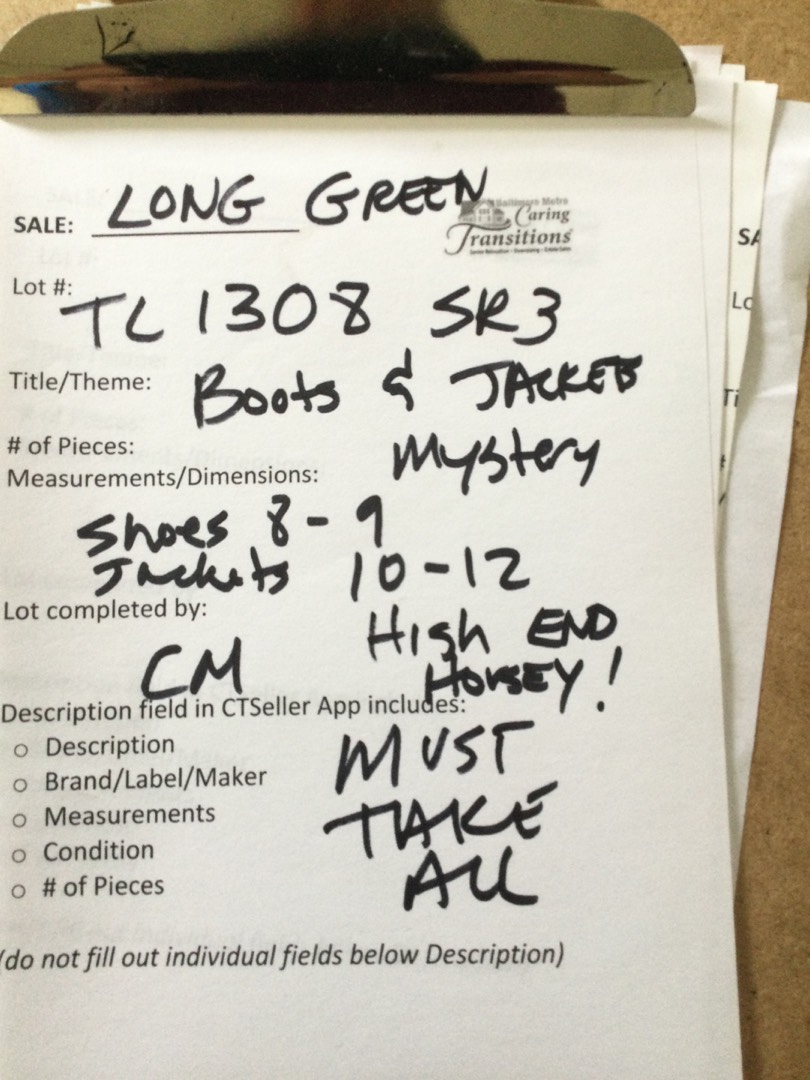 SALE: LONG GREEN
Baltimore Metro
Caring
Transitions
Lot #: TL 1308 SR3
Title/Theme: Boots & JACKETS
# of Pieces: Mystery
Measurements/Dimensions:
Shoes 8-9
Jackets 10-12
Lot completed by: High END
CM HORSEY!
Description field in CTSeller App includes:
○ Description MUST
○ Brand/Label/Maker
○ Measurements TAKE
○ Condition
○ # of Pieces ALL
(do not fill out individual fields below Description)
SA
Lo
Ti